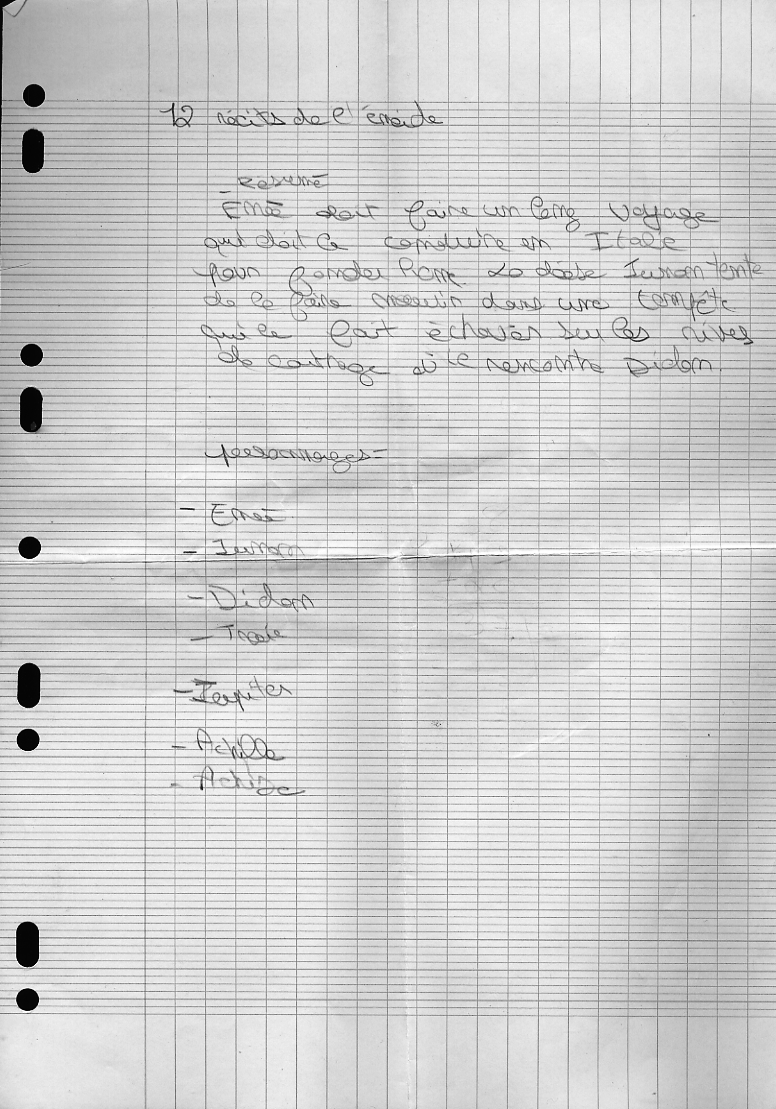 12 récits de l'énéide
- Résumé
Enée doit faire un long voyage
qui doit le conduire en Italie
pour fonder Rome. La déese Junon tente
de le faire mourir dans une tempête
qui le fait échouer sur les rives
de cartage où il rencontre Didon.
personnages=
- Enée
- Junon
- Didon
- Jupiter
- Achille
- Achize